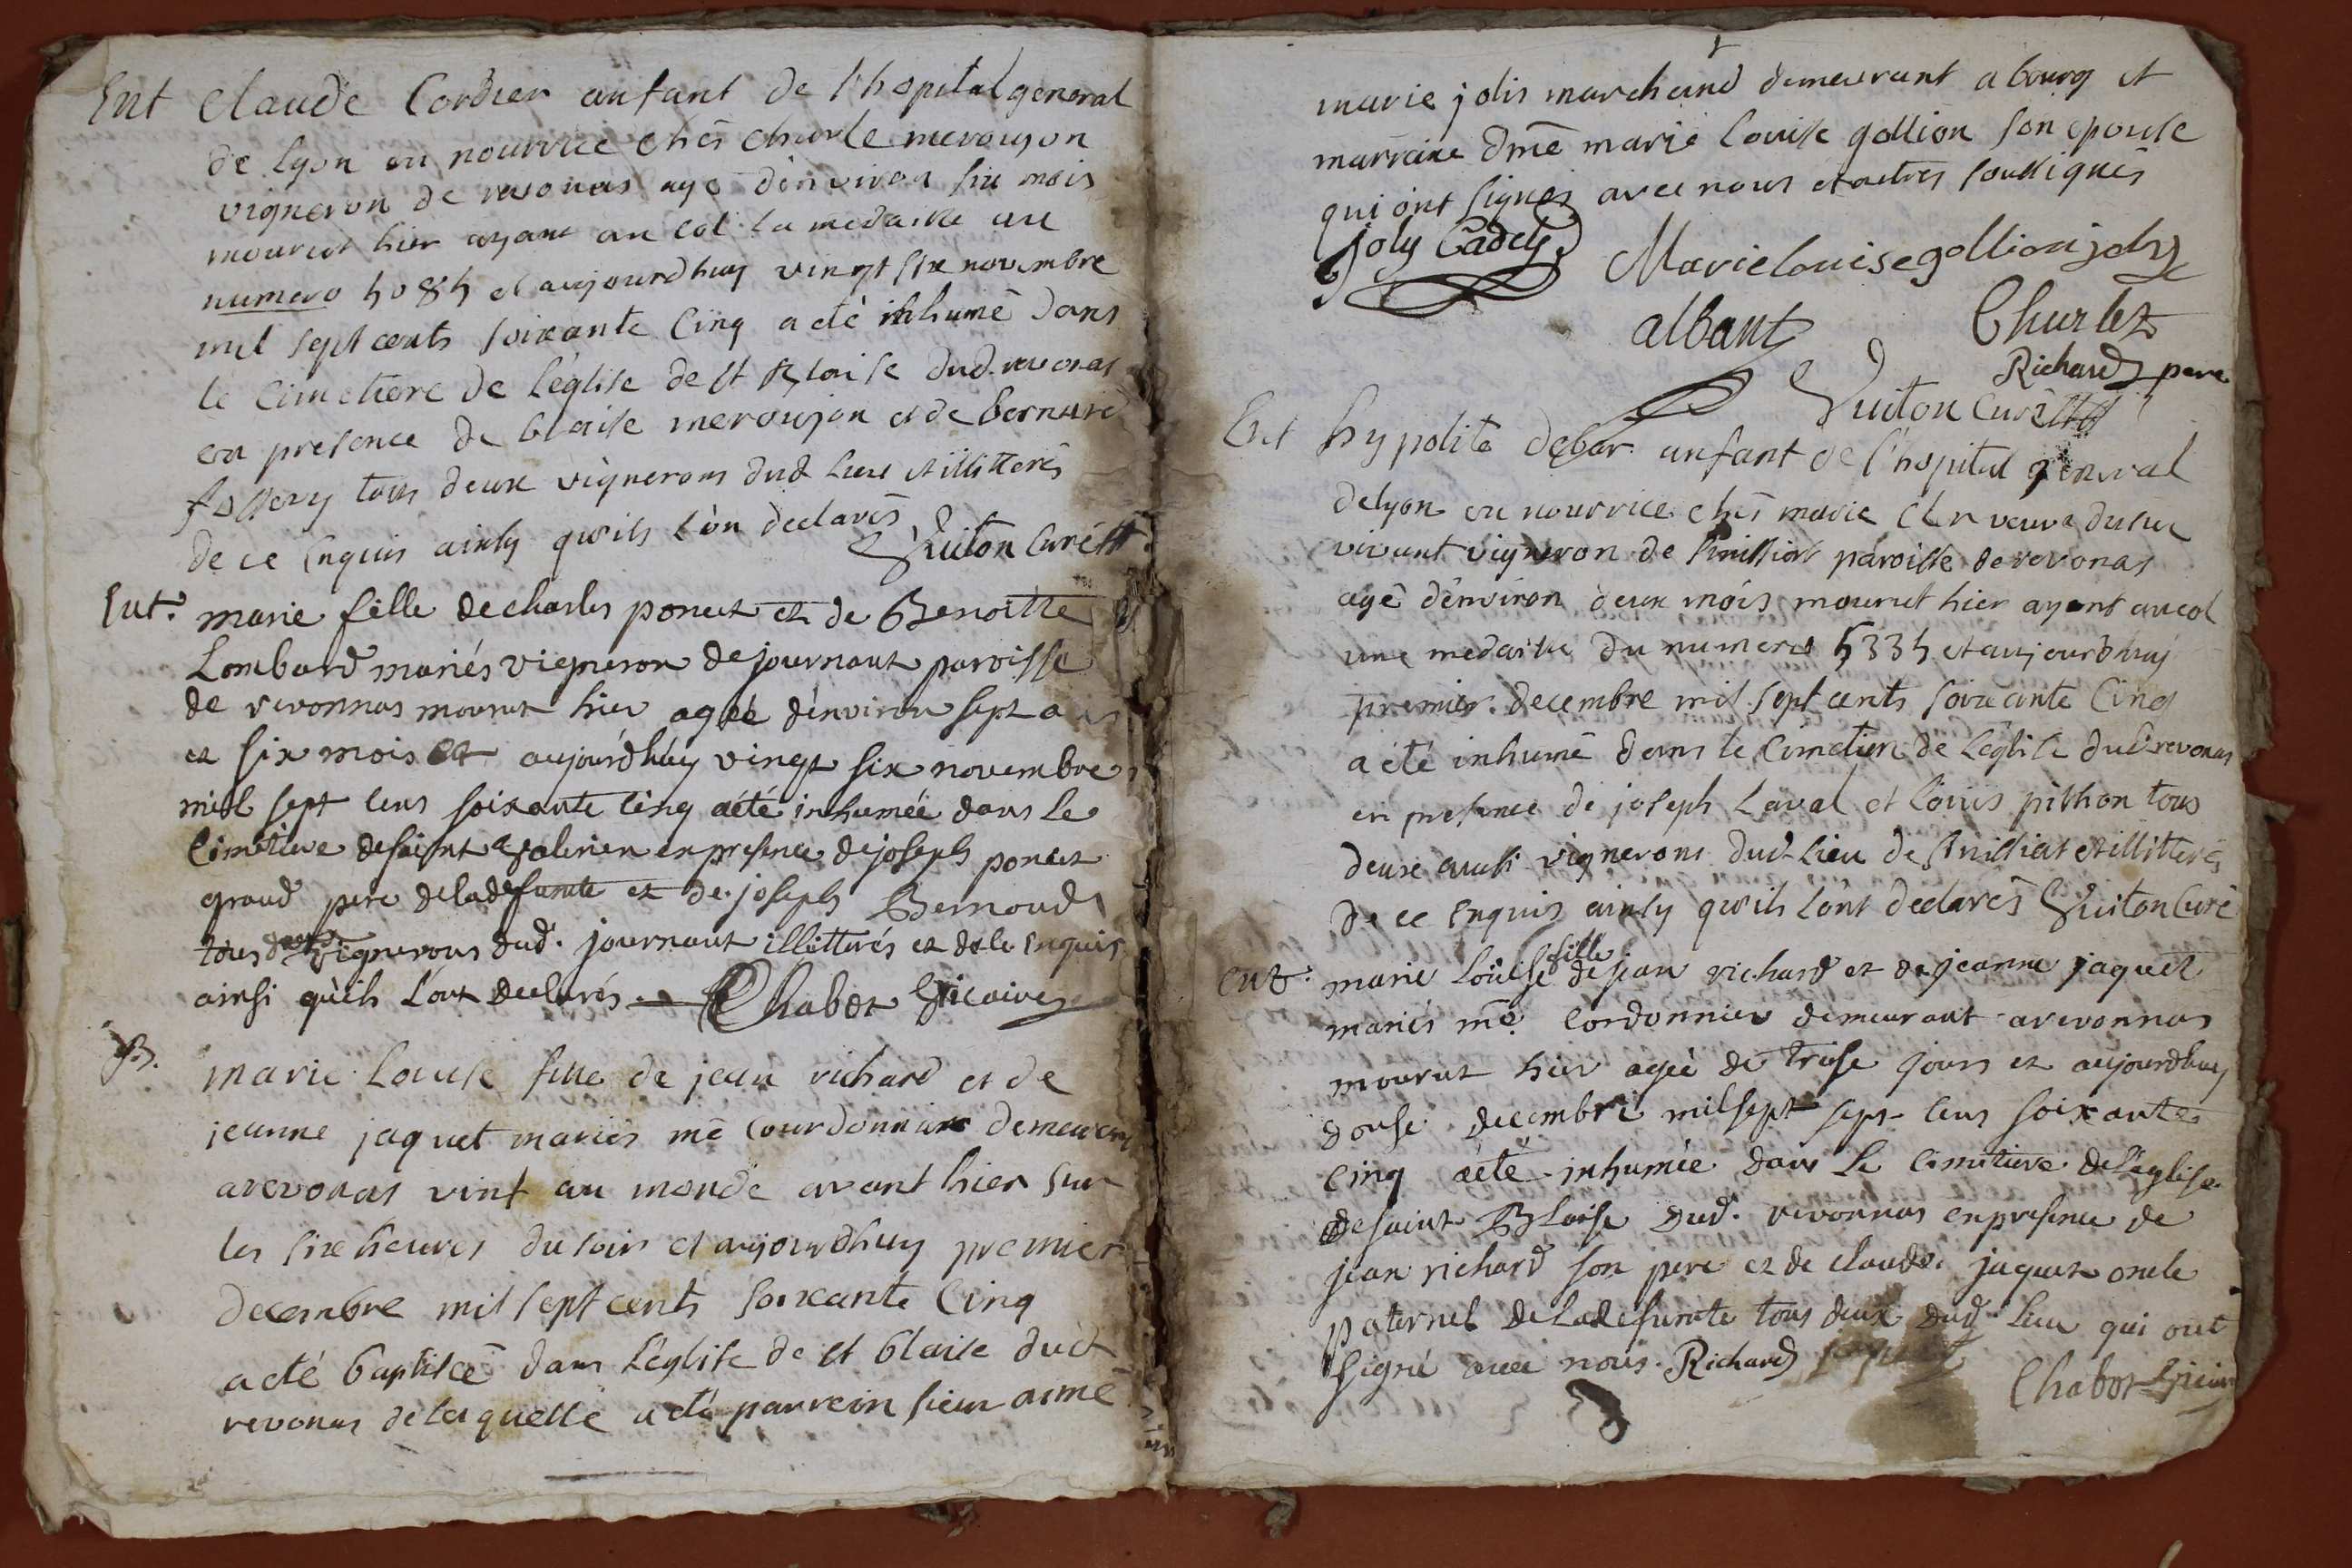 Ent Claude Cordier anfant de l'hopital general
de lyon en nourrice chés Charle merousон
vigneron de revonas agé d'environ six mois
mourut hier ayant au col la medaille au
numero 5085 et aujourdhuy vingt six novembre
mil sept cents soixante Cinq a été inhumé dans
le Cimetiere de l'église de st Blaise dud. revonas
en presence de blaise merousjon et de bernard
tous deux vignerons dud lieu et illitterés
de ce Enquis ainsy qu'ils l'on declarés Guiton Curé
Ent. marie fille de charles poncet et de Benoitte
Lombard mariés vigneron de journant paroisse
de revonnas mourut hier agée d'environ sept ans
et six mois et aujourdhuy vingt six novembre
mil sept cens soixante cinq aété inhumée dans le
Cimetiere de saint valerien en presence de joseph poncet
grand pere de la defunte et de joseph Bernoud
tous deux vignerons dud. journant illitterés et de ce enquis
ainsi qu'ils l'ont declarés. Chabot Vicaire
B. marie Louise fille de jean richard et de
jeanne jaquet mariés me Courdonnier demeurant
a revonas vint au monde avant hier sur
les six heures du soir et aujourdhuy premier
decembre mil sept cents soixante Cinq
a eté baptisée dans L'église de st blaise dud
revonas de laquelle a eté parrein sieur aimé
marie jolis marchand demeurant a bourg et
marraine dme marie louise gollion son epouse
qui ont signés avec nous et autres soussignés
joly Cadety
Marie louise gollion joly
albant Charlet
Richard pere
Guiton Curé
Ent hypolite debar anfant de l'hopital general
de lyon en nourrice chés marie veuve du sur
vivant vigneron de Senissiat paroisse de revonas
agé d'environ deux mois mourut hier ayant au col
une medaille du numero 5335 et aujourdhuy
premier decembre mil sept cents soixante Cinq
a été inhumé dans le Cimetiere de l'église dud revonas
en presence de joseph Laval et louis pithon tous
deux aussi vignerons dud lieu de Senissiat et illitterés
de ce Enquis ainsy qu'ils l'ont declarés Guiton Curé
Ent. marie Louise fille de jean richard et de jeanne jaquet
mariés me Cordonnier demeurant a revonnas
mourut hier agée de treise jours et aujourdhuy
douse decembre mil sept sept cens soixante
cinq aété inhumée dans le cimetiere de l'église
de saint Blaise dud. revonnas en presence de
jean richard son pere et de claude jaquet oncle
paternel de la defunte tous deux dud lieu qui ont
signé avec nous. Richard jaquet
Chabot Vicaire